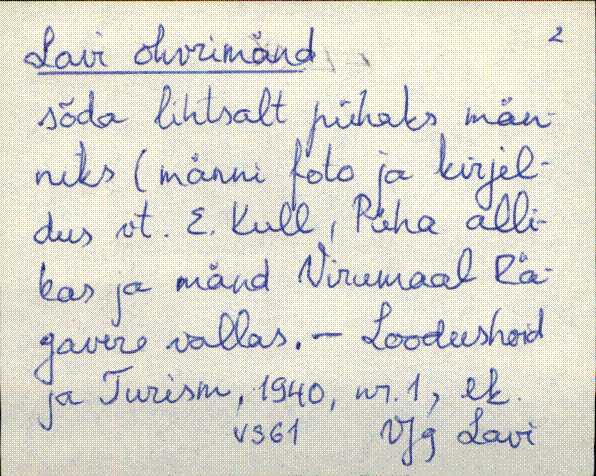 Lavi ohvrimänd 2
sõda lihtsalt pühaks män-
niks (männi foto ja kirjel-
dus vt. E. Kull, Püha alli-
kas ja mänd Virumaal Rä-
gavere vallas. – Loodushoid
ja Turism, 1940, nr. 1, lk.
VJg Lavi